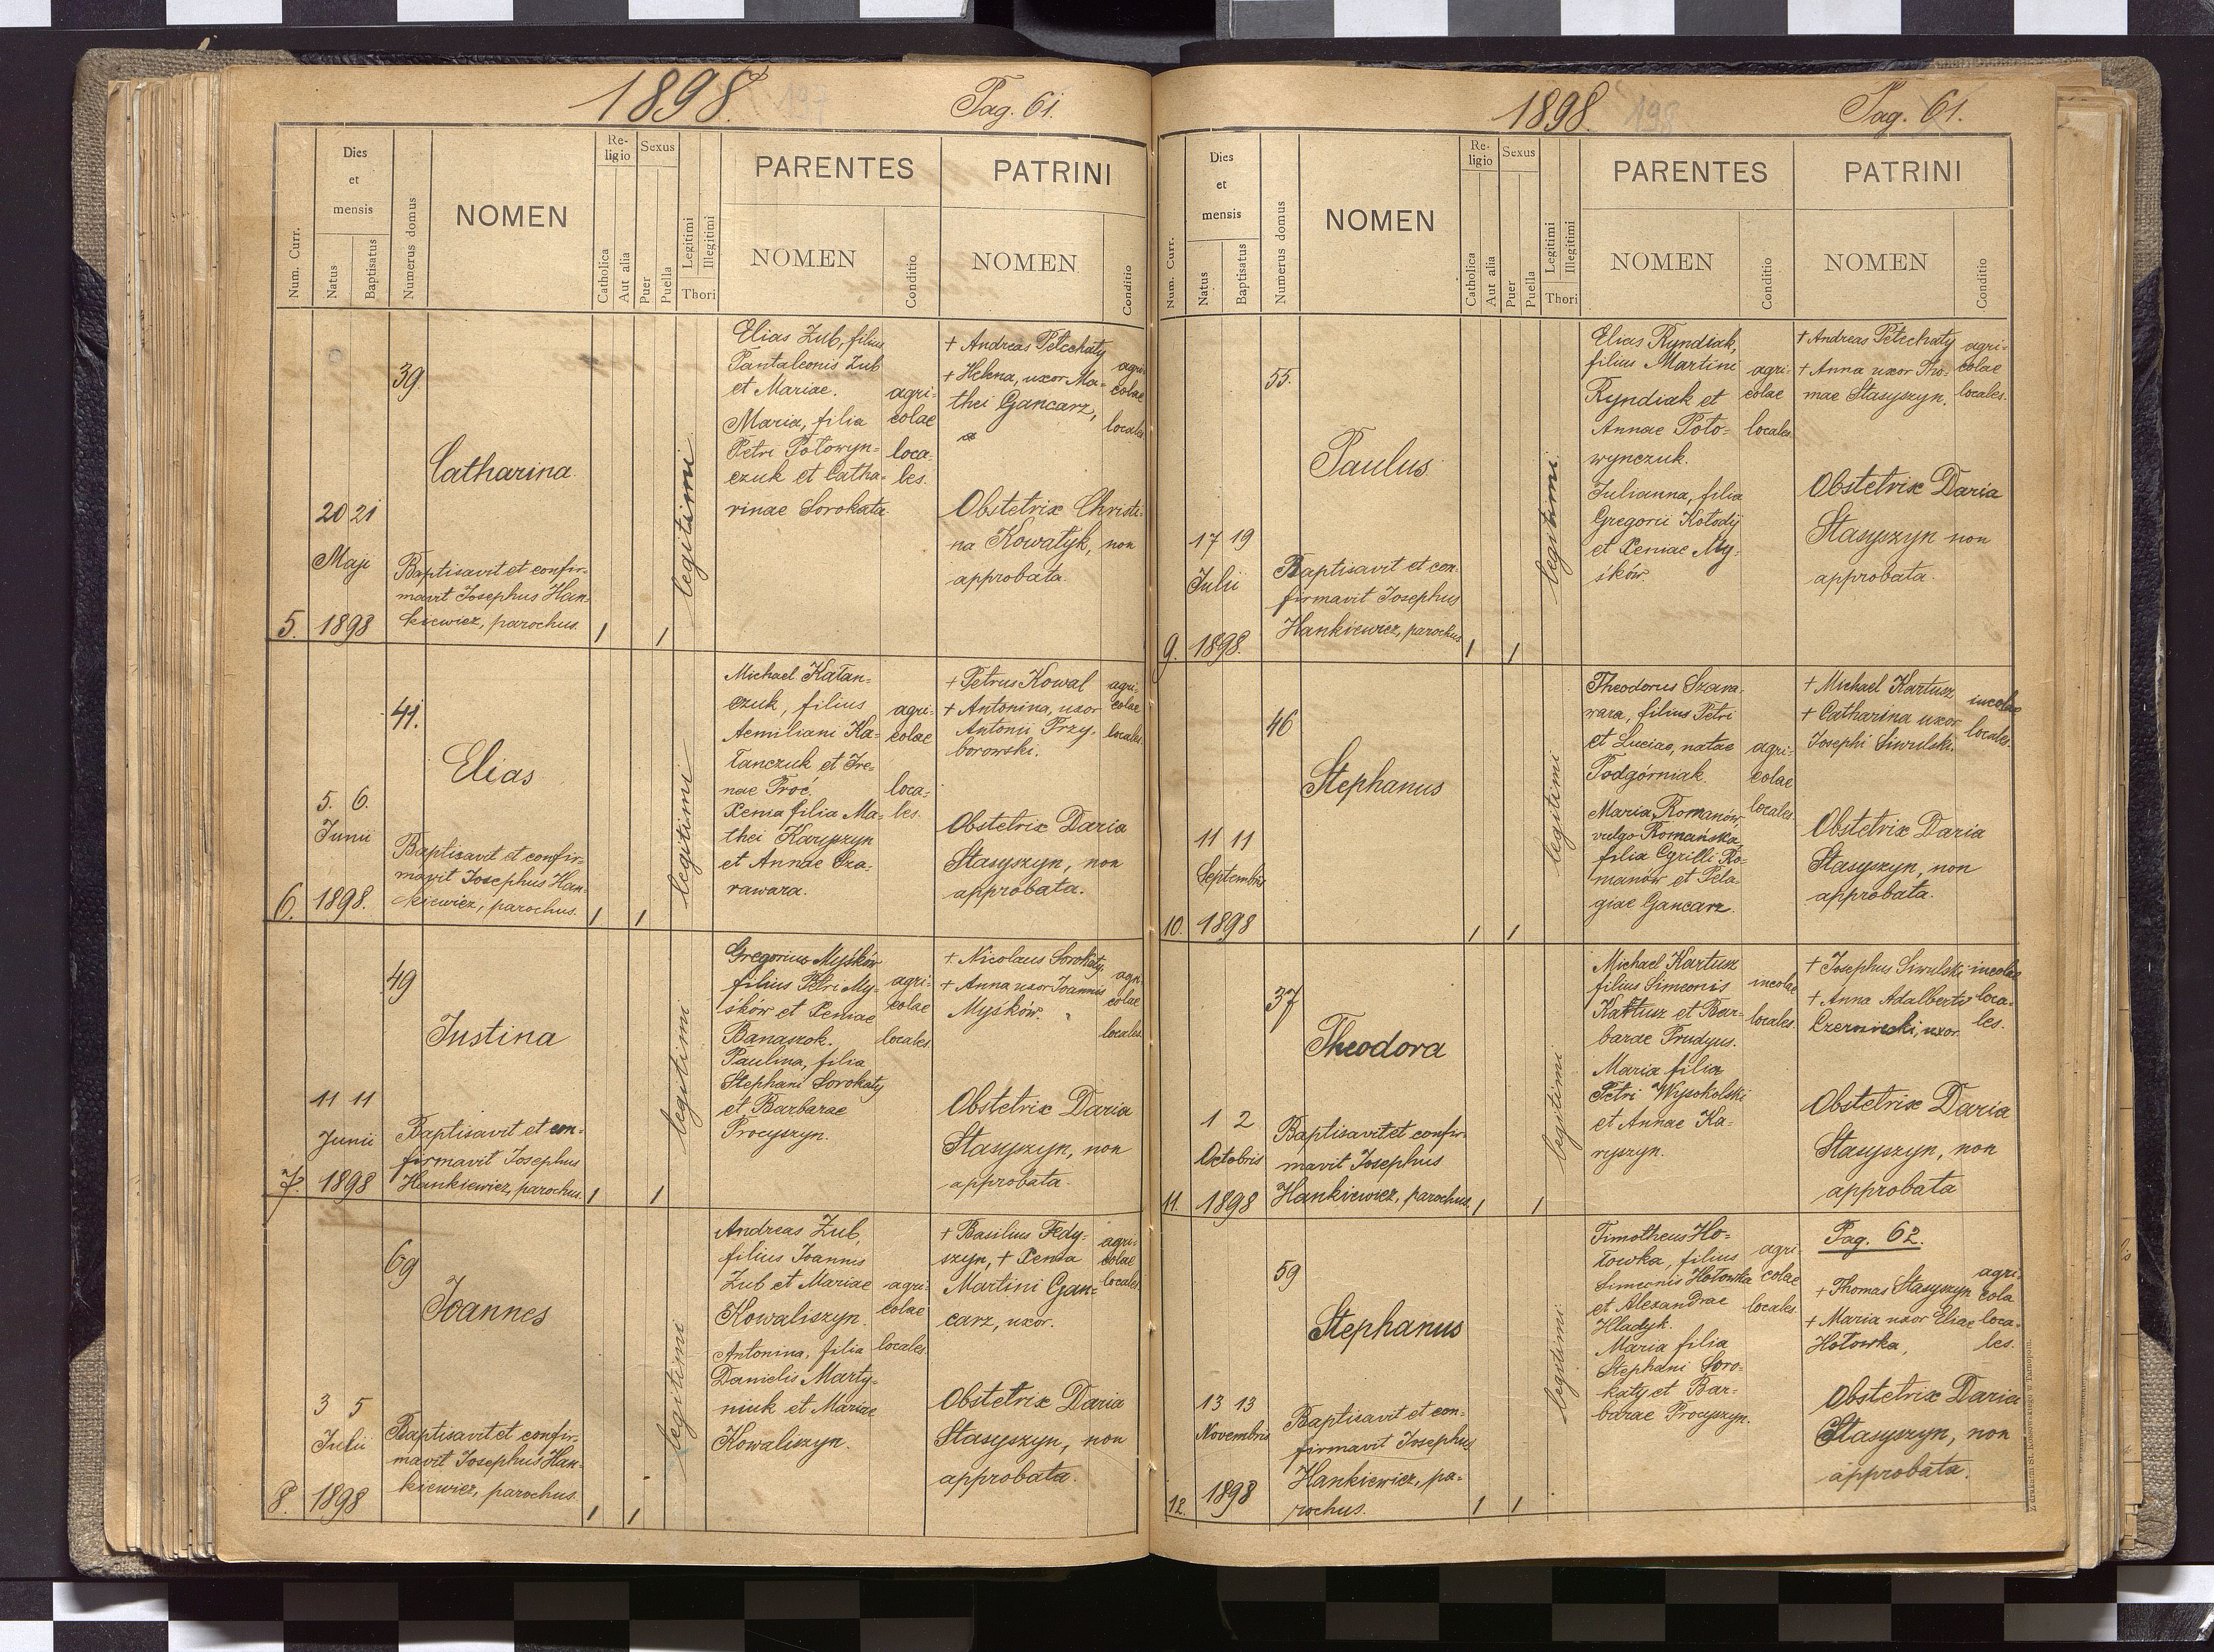 1898.
Pag. 61.
Num. Curr.
Dies
et
mensis
Natus
Baptisatus
Numerus domus
NOMEN
Re-
ligio
Catholica
Aut alia
Sexus
Puer
Puella
Legitimi
Illegitimi
Thori
PARENTES
NOMEN
Conditio
PATRINI
NOMEN
Conditio
5.
20 21
Maji
1898
39
Catharina
Baptisavit et confir-
mavit Josephus Han-
kiewicz, parochus.
1
1
legitimi
Elias Zub, filius
Pantaleonis Zub
et Mariae.
Maria, filia
Petri Połowyn-
czuk et Catha-
rinae Sorokata
agri-
colae
loca-
les.
+ Andreas Petechaty
+ Helena, uxor Ma-
thei Gancarz,
agri-
colae
locales
Obstetrix Christi-
na Kowalyk, non
approbata.
6.
5. 6.
Junii
1898.
41.
Elias
Baptisavit et confir-
mavit Josephus Han-
kiewicz, parochus.
1
1
legitimi
Michael Kałan-
czuk, filius
Aemiliani Ka-
łanczuk et Ire-
nae Proć.
Xenia filia Ma-
thei Karyszyn
et Annae Sza-
rawara.
agri-
colae
loca-
les.
+ Petrus Kowal
+ Antonina, uxor
Antonii Przy-
borowski.
agri-
colae
locales.
Obstetrix Daria
Stasyszyn, non
approbata.
7.
11 11
Junii
1898
49
Justina
Baptisavit et con-
firmavit Josephus
Hankiewicz, parochus.
1
1
legitimi
Gregorius Myśków
filius Petri My-
śków et Xeniae
Banaszok.
Paulina, filia
Stephani Sorokaty
et Barbarae
Procyszyn.
agri-
colae
locales.
+ Nicolaus Sorokaty
+ Anna uxor Joannis
Myśków.
agri-
colae
locales.
Obstetrix Daria
Stasyszyn, non
approbata.
8.
3 5
Julii
1898
69
Joannes
Baptisavit et confir-
mavit Josephus Han-
kiewicz, parochus.
1
1
legitimi
Andreas Zub,
filius Joannis
Zub et Mariae
Kowaliszyn.
Antonina, filia
Danielis Marty-
niuk et Mariae
Kowaliszyn.
agri-
colae
locales.
+ Basilius Fedy-
szyn, + Xenia
Martini Gan-
carz, uxor.
agri-
colae
locales.
Obstetrix Daria
Stasyszyn, non
approbata.
1898.
198
Pag. 61.
Num. Curr.
Dies
et
mensis
Natus
Baptisatus
Numerus domus
NOMEN
Re-
ligio
Catholica
Aut alia
Sexus
Puer
Puella
Legitimi
Illegitimi
Thori
PARENTES
NOMEN
Conditio
PATRINI
NOMEN
Conditio
9.
17 19
Julii
1898.
55.
Paulus
Baptisavit et con-
firmavit Josephus
Hankiewicz, parochus
1
1
legitimi.
Elias Ryndiak,
filius Martini
Ryndiak et
Annae Poło-
wynczuk.
Julianna, filia
Gregorii Kołodÿ
et Xeniae My-
śków.
agri-
colae
locales.
+ Andreas Petechaty
+ Anna uxor Tho-
mae Stasyszyn.
agri-
colae
locales.
Obstetrix Daria
Stasyszyn non
approbata.
10.
11 11
Septembris
1898
46
Stephanus
1
1
legitimi
Theodorus Szara-
wara, filius Petri
et Luciae, natae
Podgórniak.
Maria Romanów
vulgo Romańska,
filia Cyrilli Ro-
manów et Pela-
giae Gancarz.
agri-
colae
locales.
+ Michael Kartusz
+ Catharina uxor
Josephi Siwulski.
incolae
locales.
Obstetrix Daria
Stasyszyn, non
approbata.
11.
1 2
Octobris
1898
37
Theodora
Baptisavit et confir-
mavit Josephus
Hankiewicz, parochus,
1
1
legitimi
Michael Kartusz
filius Simeonis
Kartusz et Bar-
barae Prudyus.
Maria filia
Petri Wysokolski
et Annae Ka-
ryszyn.
incolae
locales.
+ Josephus Siwulski
+ Anna Adalberti
Czerniecki, uxor.
incolae
loca-
les.
Obstetrix Daria
Stasyszyn, non
approbata
12.
13 13
Novembris
1898
59
Stephanus
Baptisavit et con-
firmavit Josephus
Hankiewicz, pa-
rochus.
1
1
legitimi.
Timotheus Ho-
łowka, filius
Simeonis Hołowka
et Alexandrae
Hladyk.
Maria filia
Stephani Soro-
katy et Bar-
barae Procyszyn.
agri-
colae
locales.
Pag. 62.
+ Thomas Stasyszyn
+ Maria uxor Eliae
Hołowka,
agri-
cola
loca-
les.
Obstetrix Daria
Stasyszyn, non
approbata.